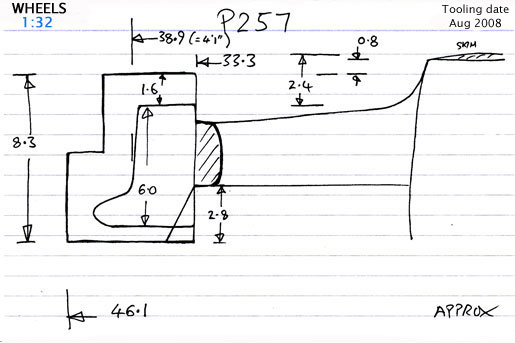 WHEELS
1:32
Tooling date
Aug 2008
P257
38.9 (=4'1")
33.3
0.8
SKIM
2.4
1.6
8.3
6.0
2.8
46.1
APPROX